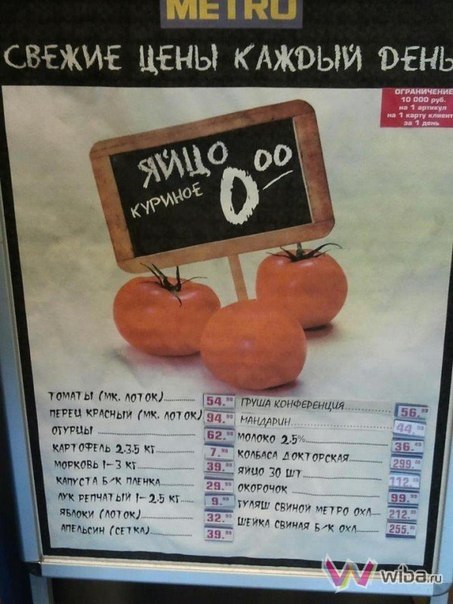 METRO
СВЕЖИЕ ЦЕНЫ КАЖДЫЙ DЕНЬ
ОГРАНИЧЕНИЕ
10 000 руб.
на 1 артикул
на 1 карту клиент
за 1 день
ЯЙЦО
КУРИНОЕ
0 00
ТОМАТЫ (МК. ЛОТОК) 54.
ПЕРЕЦ КРАСНЫЙ (МК. ЛОТОК) 94.
ОГУРЦЫ 62.
КАРТОФЕЛЬ 2-3.5 КГ 7.
МОРКОВЬ 1-3 КГ 39.
КАПУСТА Б/К ПЛЕНКА 29.
ЛУК РЕПЧАТЫЙ 1-2.5 КГ 9.
ЯБЛОКИ (ЛОТОК) 32.
АПЕЛЬСИН (СЕТКА) 39.
ГРУША КОНФЕРЕНЦИЯ 56.
МАНДАРИН 44.
МОЛОКО 2.5% 36.
КОЛБАСА ДОКТОРСКАЯ 299.
ЯЙЦО 30 ШТ 112.
ОКОРОЧОК 99.
ГУЛЯШ СВИНОЙ METRO ОХЛ 212.
ШЕЙКА СВИНАЯ Б/К ОХЛ 255.
wiba.ru